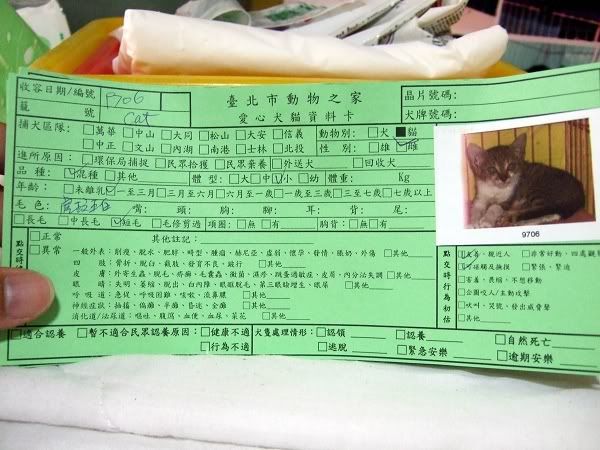 收容日期/編號 B06
籠 號 Cat
臺北市動物之家
愛心犬貓資料卡
晶片號碼:
犬牌號碼:
捕犬區隊: □萬華 □中山 □大同 □松山 □大安 □信義 動物別: □犬 ■貓
□中正 □文山 □內湖 □南港 □士林 □北投 性 別: □雄 ☑雌
進所原因: □環保局捕捉 □民眾拾獲 □民眾棄養 □外送犬 □回收犬
品 種: ☑混種 □其他 體 型: □大 □中 ☑小 □幼 體重: Kg
年齡: □未離乳 ☑一至三月 □三月至六月 □六月至一歲 □一歲至三歲 □三至七歲 □七歲以上
毛 色: 嘴: 頭: 胸: 腳: 耳: 背: 尾:
□長毛 □中長毛 ☑短毛 □毛修剪過 項圈: □無 □有 胸背: □無 □有
9706
點交時
□正常 其他註記:
□異常 一般外表: 削瘦、脫水、肥胖、畸型、腫瘤、赫尼亞、蟲咬、懷孕、發情、脹奶、外傷 □其他
四 肢: 骨折、脫臼、截肢、發育不良、跛行 □其他
皮 膚: 外寄生蟲、脫毛、疥癬、毛囊蟲、黴菌、濕疹、跳蚤過敏症、皮屑、內分泌失調 □其他
眼 睛: 失明、萎縮、脫出、白內障、眼瞼脫毛、第三眼瞼增生、眼屎 □其他
呼 吸 道: 急促、呼吸困難、咳嗽、流鼻膿 □其他
神經症狀: 抽搐、偏癱、半癱、昏迷、全癱 □其他
消化道/泌尿道: 嘔吐、腹瀉、血便、血尿、菜花 □其他
點交時行為初估
☑友善、親近人 □非常好動、四處觀
☑可接觸及撫摸 □緊張、緊迫
□害羞、畏縮、不想移動
□公園咬人/主動攻擊
□吠叫、哭號、發出威脅聲
□其他
□適合認養 □暫不適合民眾認養原因: □健康不適
□行為不適
犬隻處理情形: □認領 □認養 □自然死亡
□逃脫 □緊急安樂 □逾期安樂